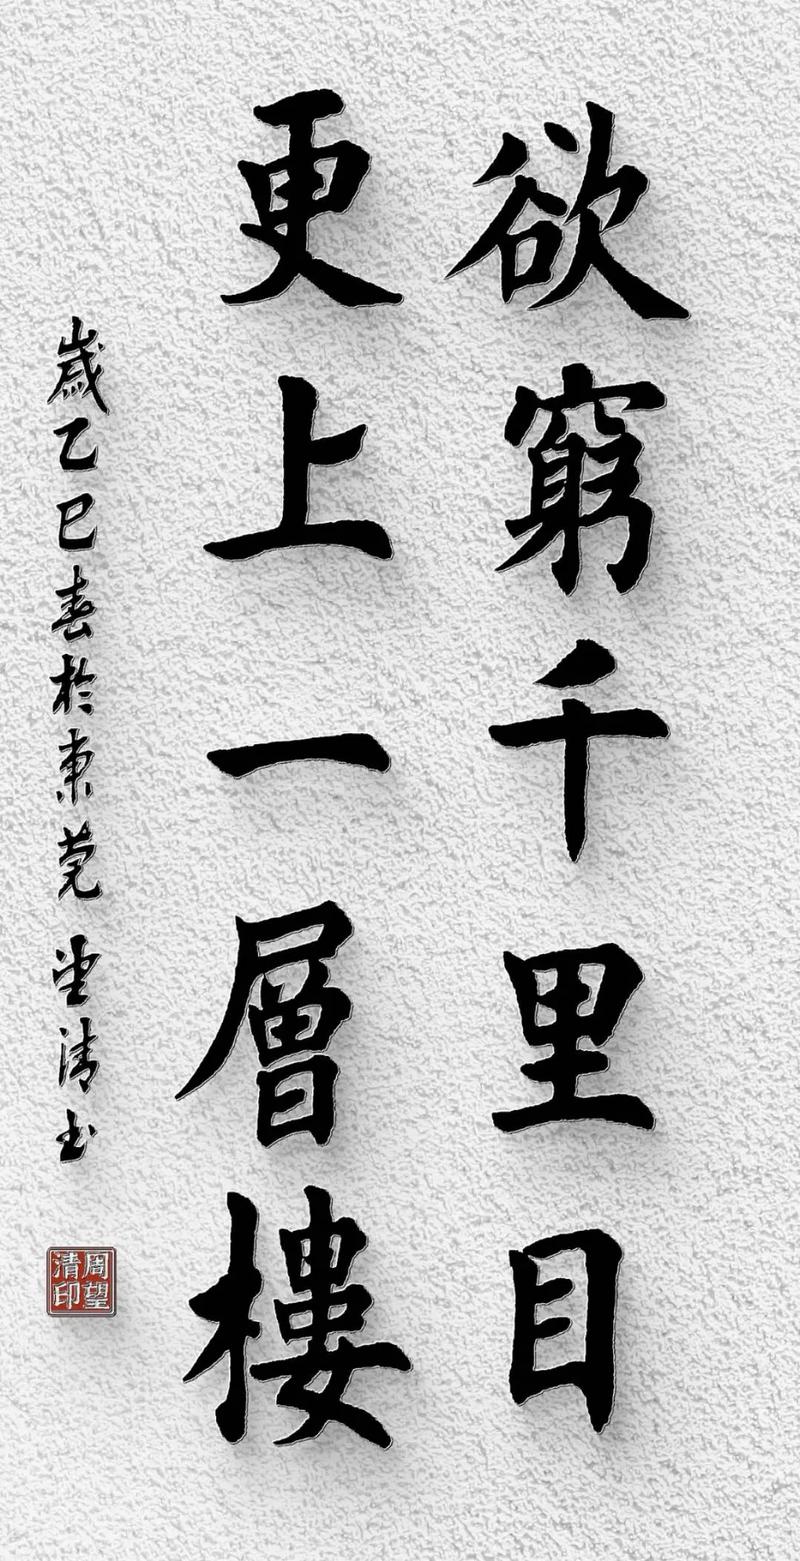 欲窮千里目
更上一層樓
歲乙巳春於東莞望清书
周望清印